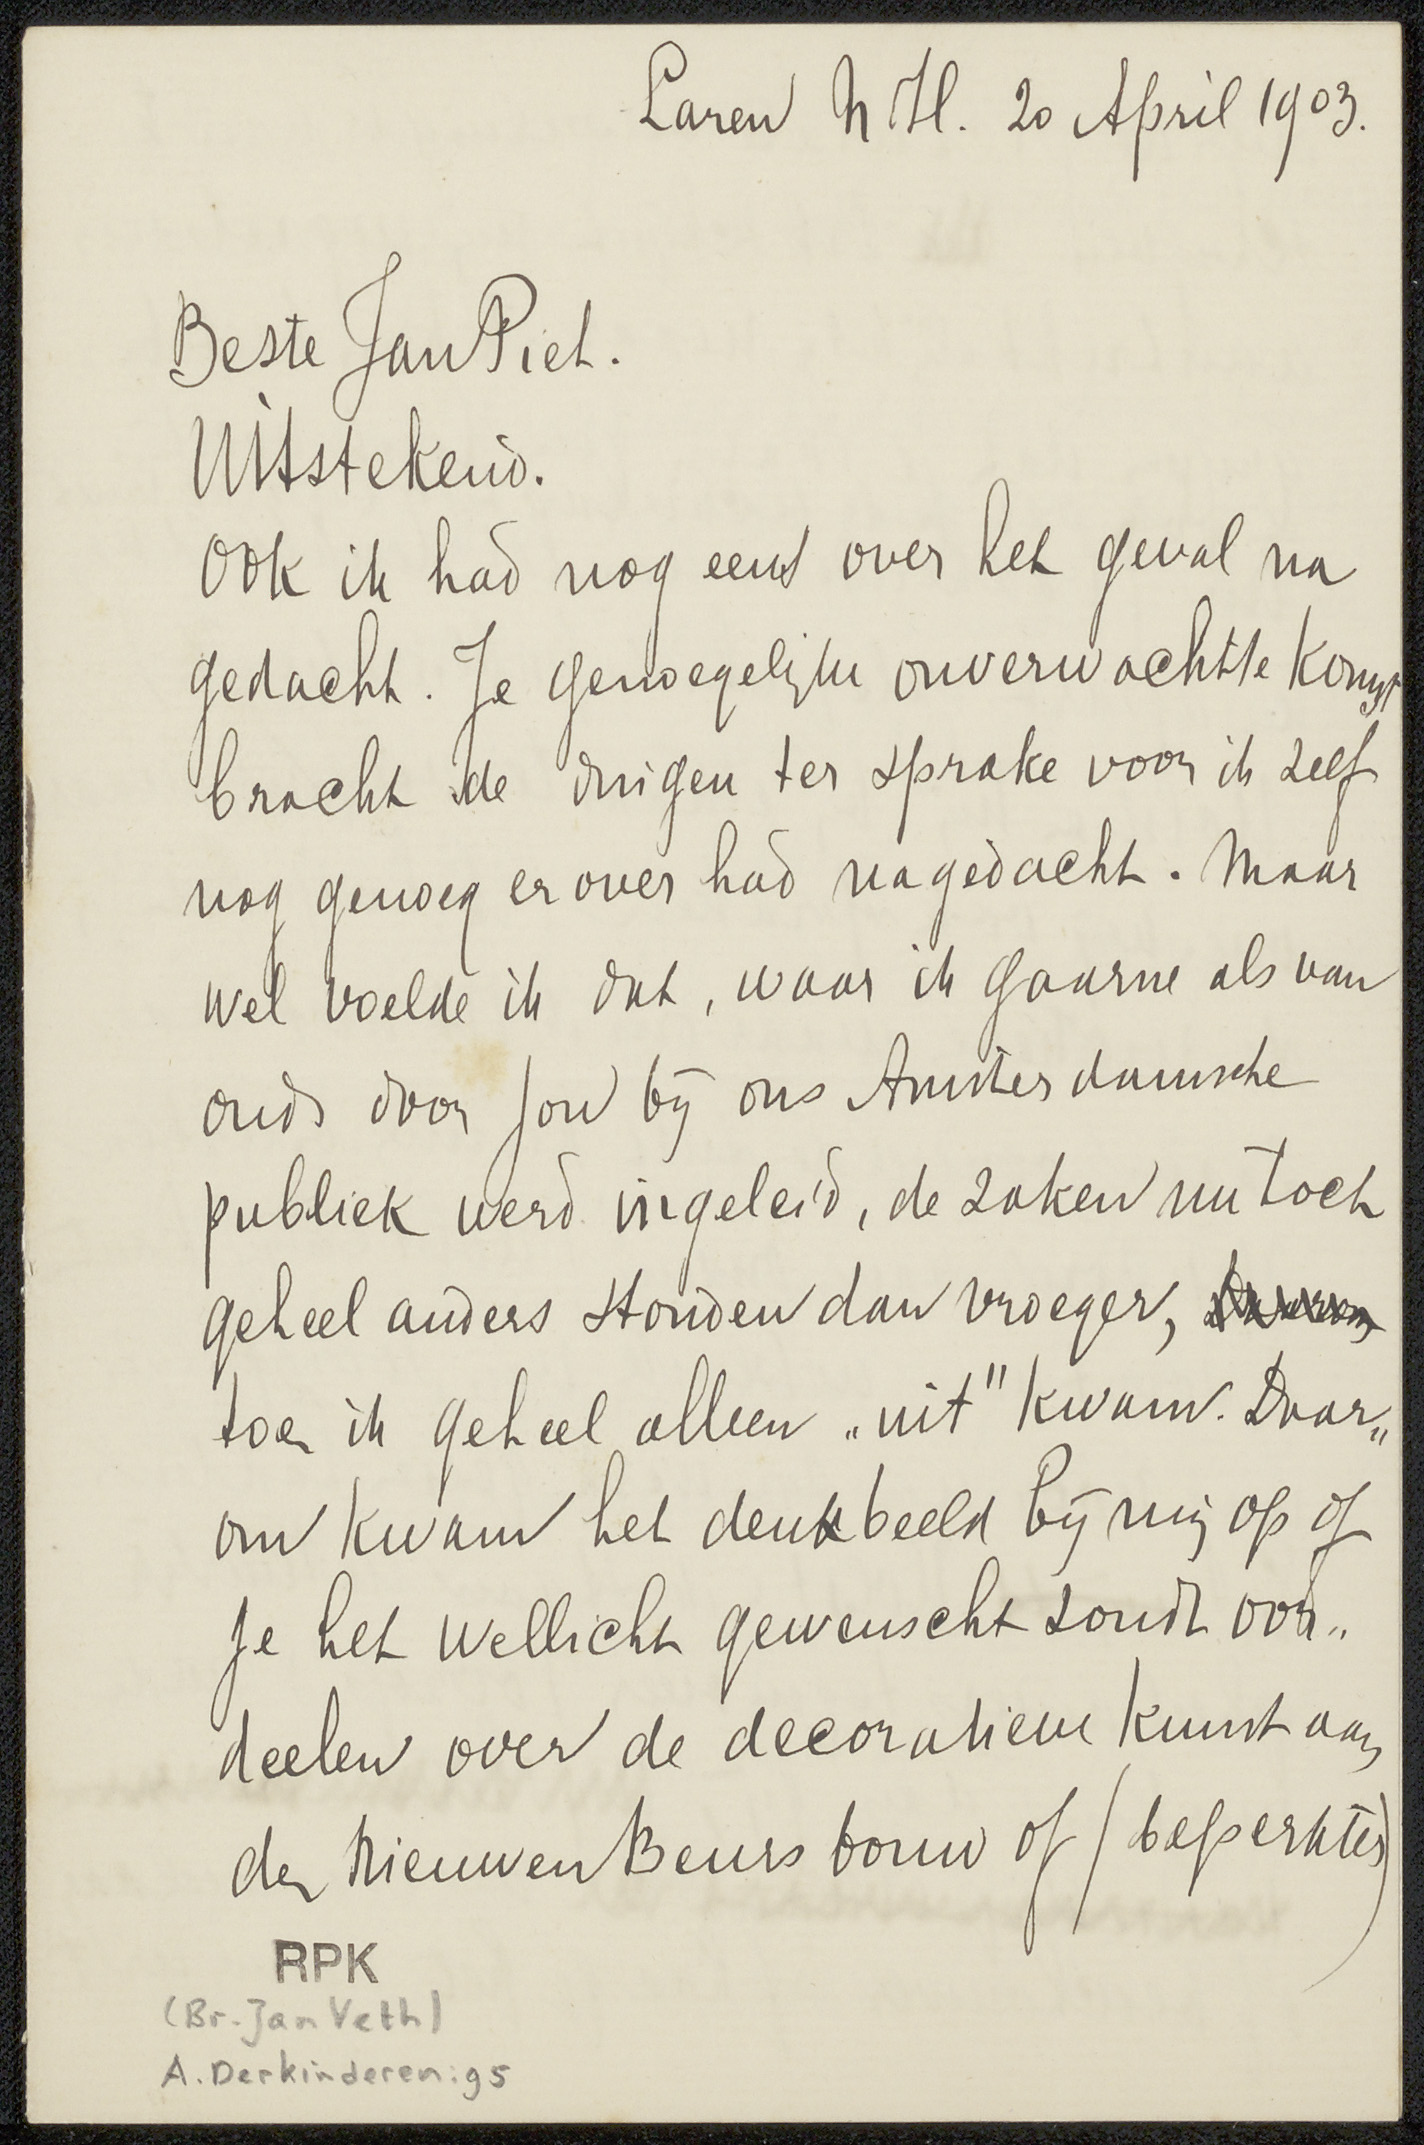 Laren N H. 20 April 1903.
Beste Jan Piet.
Uitstekend.
Ook ik had nog eens over het geval na
gedacht. Je genoegelijke onverwachtte komst
bracht de dingen ter sprake voor ik zelf
nog genoeg er over had nagedacht. Maar
wel voelde ik dat, waar ik gaarne als van
ouds door jou bij ons Amsterdamsche
publiek werd ingeleid, de zaken nu toch
geheel anders stonden dan vroeger,
toen ik geheel alleen „uit" kwam. Daar„
om kwam het denkbeeld bij mij op of
je het wellicht gewenscht zoudt oor„
deelen over de decoratieve kunst aan
den Nieuwen Beurs bouw of (beperkter)
RPK
(Br. Jan Veth)
A. Derkinderen: 95